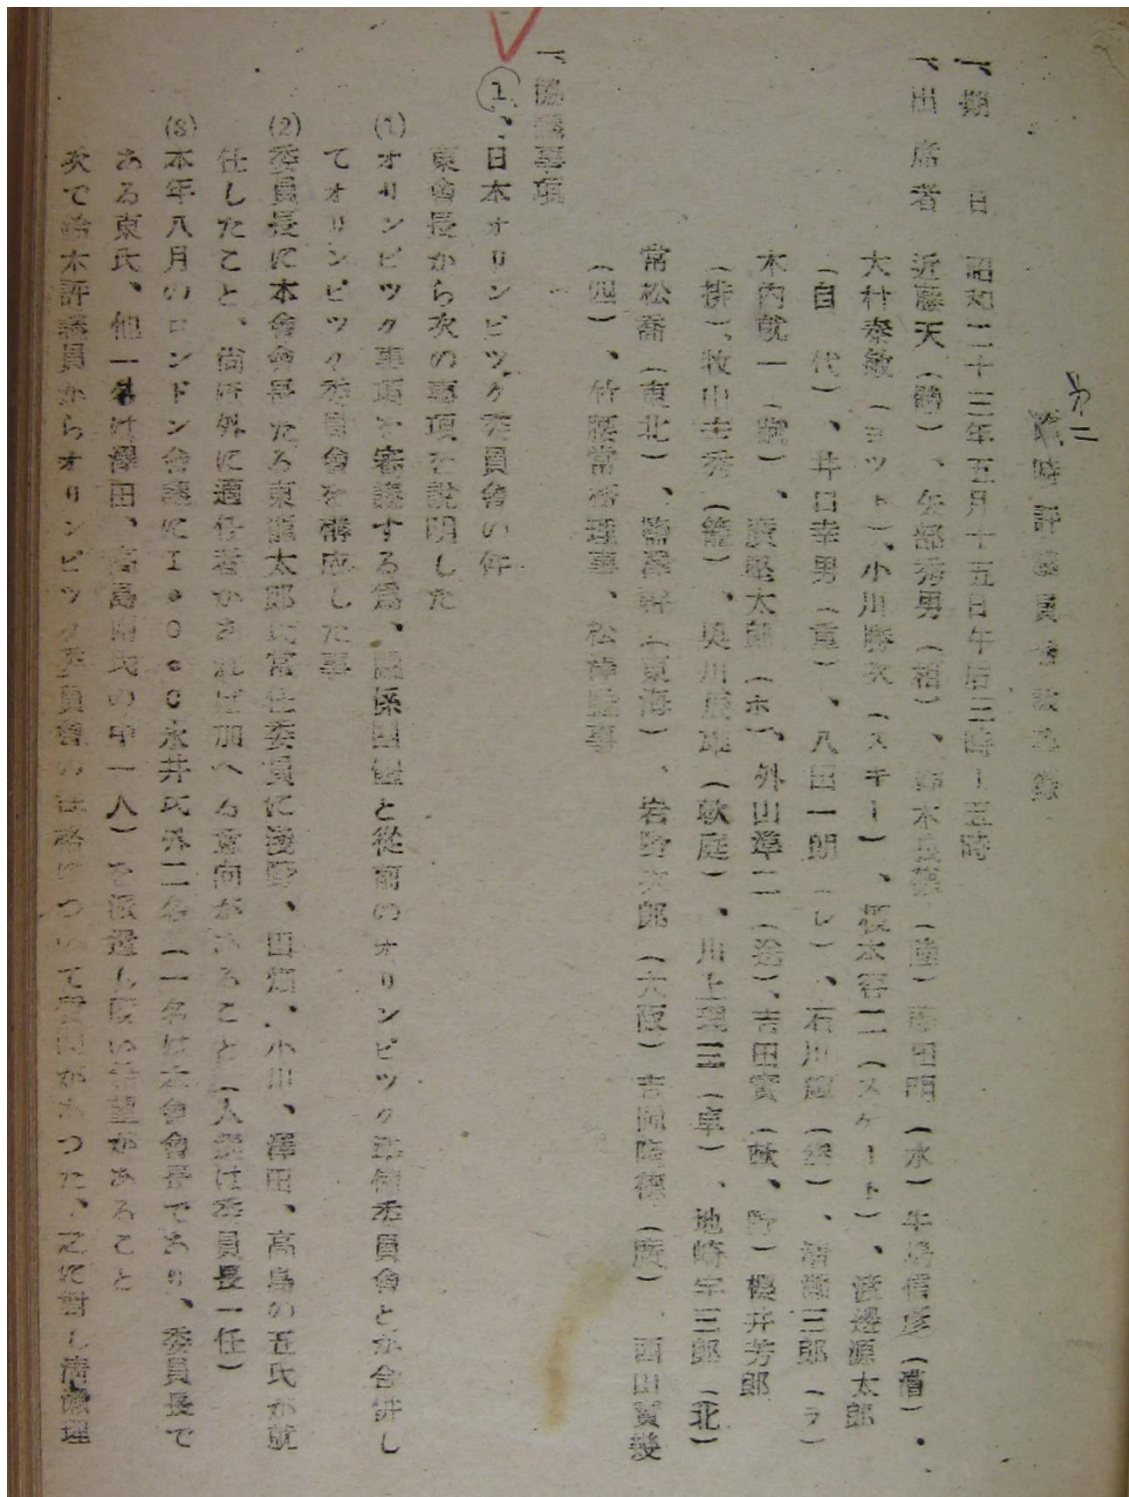 第二
臨時評議員會議事録
一、期日 昭和二十三年五月十五日午后三時ー五時
一、出席者 近藤天（體）、矢部秀男（相）、鈴木良徳（陸）藤田明（水）牛場信彦（漕）、
大村泰敏（ヨツト）、小川勝次（スキー）、榎本容二（スケート）、渡邊源太郎
（自 代）、井口幸男（重）、八田一朗（レ）、石川輝（拳）、清瀬三郎（ラ）
木内就一（蹴）、廣堅太郎（ホ）、外山準二（送）、吉田實（軟、野）櫻井芳郎
（排）、牧山圭秀（籠）、奥川辰雄（軟庭）、川上理三（卓）、地崎宇三郎（北）
常松喬（東北）、（東海）、岩野次郎（大阪）吉岡隆徳（廣）、西山賀幾
（四）、竹腰常務理事、松（監事
一、協議事項
①、日本オリンピツク委員會の件
東會長から次の事項を説明した
(1)オリンピツク事項を審議する為、關係団體と從前のオリンピツク準備委員會とが合併し
てオリンピツク委員會を構成した事
(2)委員長に本會會長たる東龍太郎氏常任委員に淺野、田畑、小川、澤田、高島の五氏が就
任したこと、尚ほ外に適任者があれば加へる意向があること（人選は委員長一任）
(3)本年八月のロンドン會議にI。O。C永井氏外二名（一名は本會會長であり、委員長で
ある東氏、他一名は澤田、高島両氏の中一人）を派遣し度い希望があること
次で鈴木評議員からオリンピツク委員會の性格について質問があつた、之に對し清瀬理